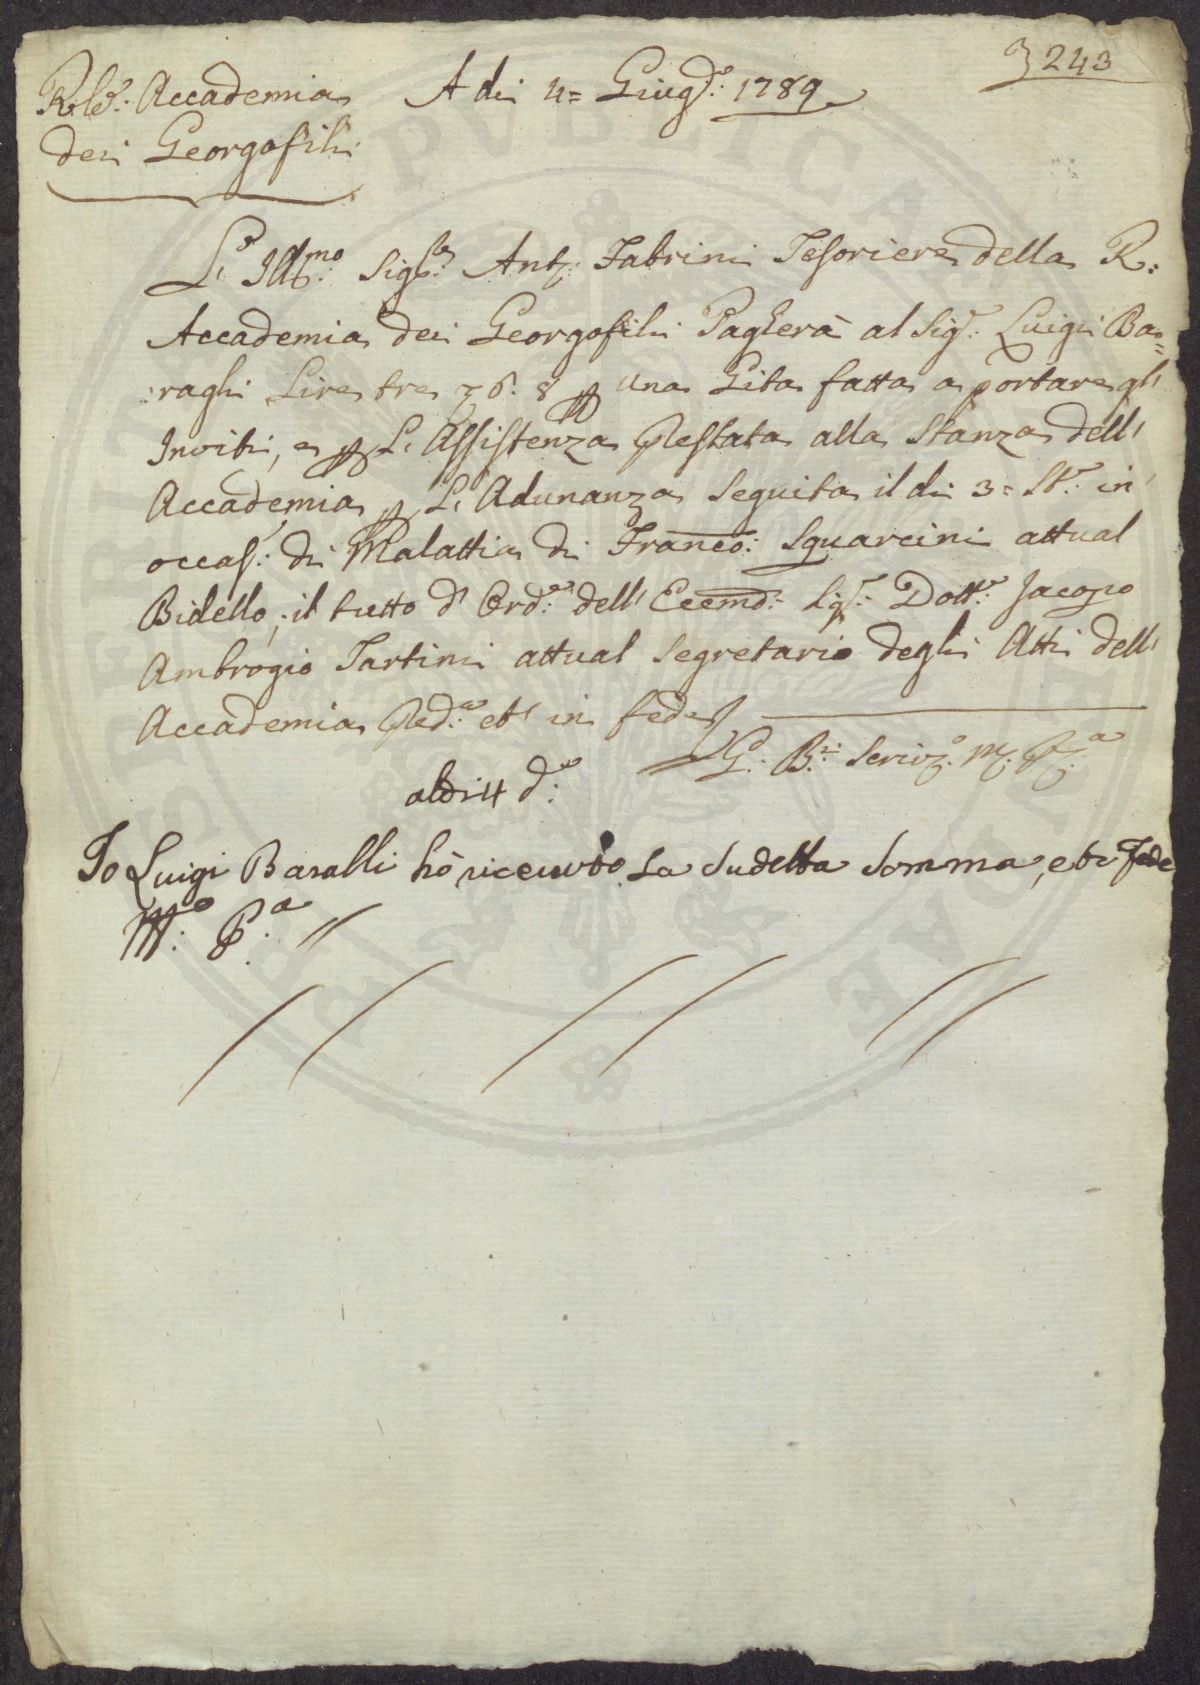 243
R.le Accademia
dei Georgofili
A di 4= Giug.o 1789
L' Ill.mo Sig.re Ant.o Fabrini Tesoriere della R.
Accademia dei Georgofili Pagherà al Sig.r Luigi Ba=
raghi Lire tre 6. 8 p una Gita fatta a portare gl'
Inviti, e p L' Assistenza Prestata alla Stanza dell'
Accademia p L' Adunanza Seguita il di 3= St.e in
occas.e di Malattia di Franco: Squarcini attual
Bidello, il tutto d' Ord.e dell' Eccmo: Sig.r Dott.e Jacopo
Ambrogio Tartini attual Segretario degli Atti dell'
Accademia Pred.a et in fede
G. B.ri Scriv.o m. p.a
aldi 4 d.o
Io Luigi Baralli hò riceuuto La Sudetta Somma, e in Fede
M.o P.a